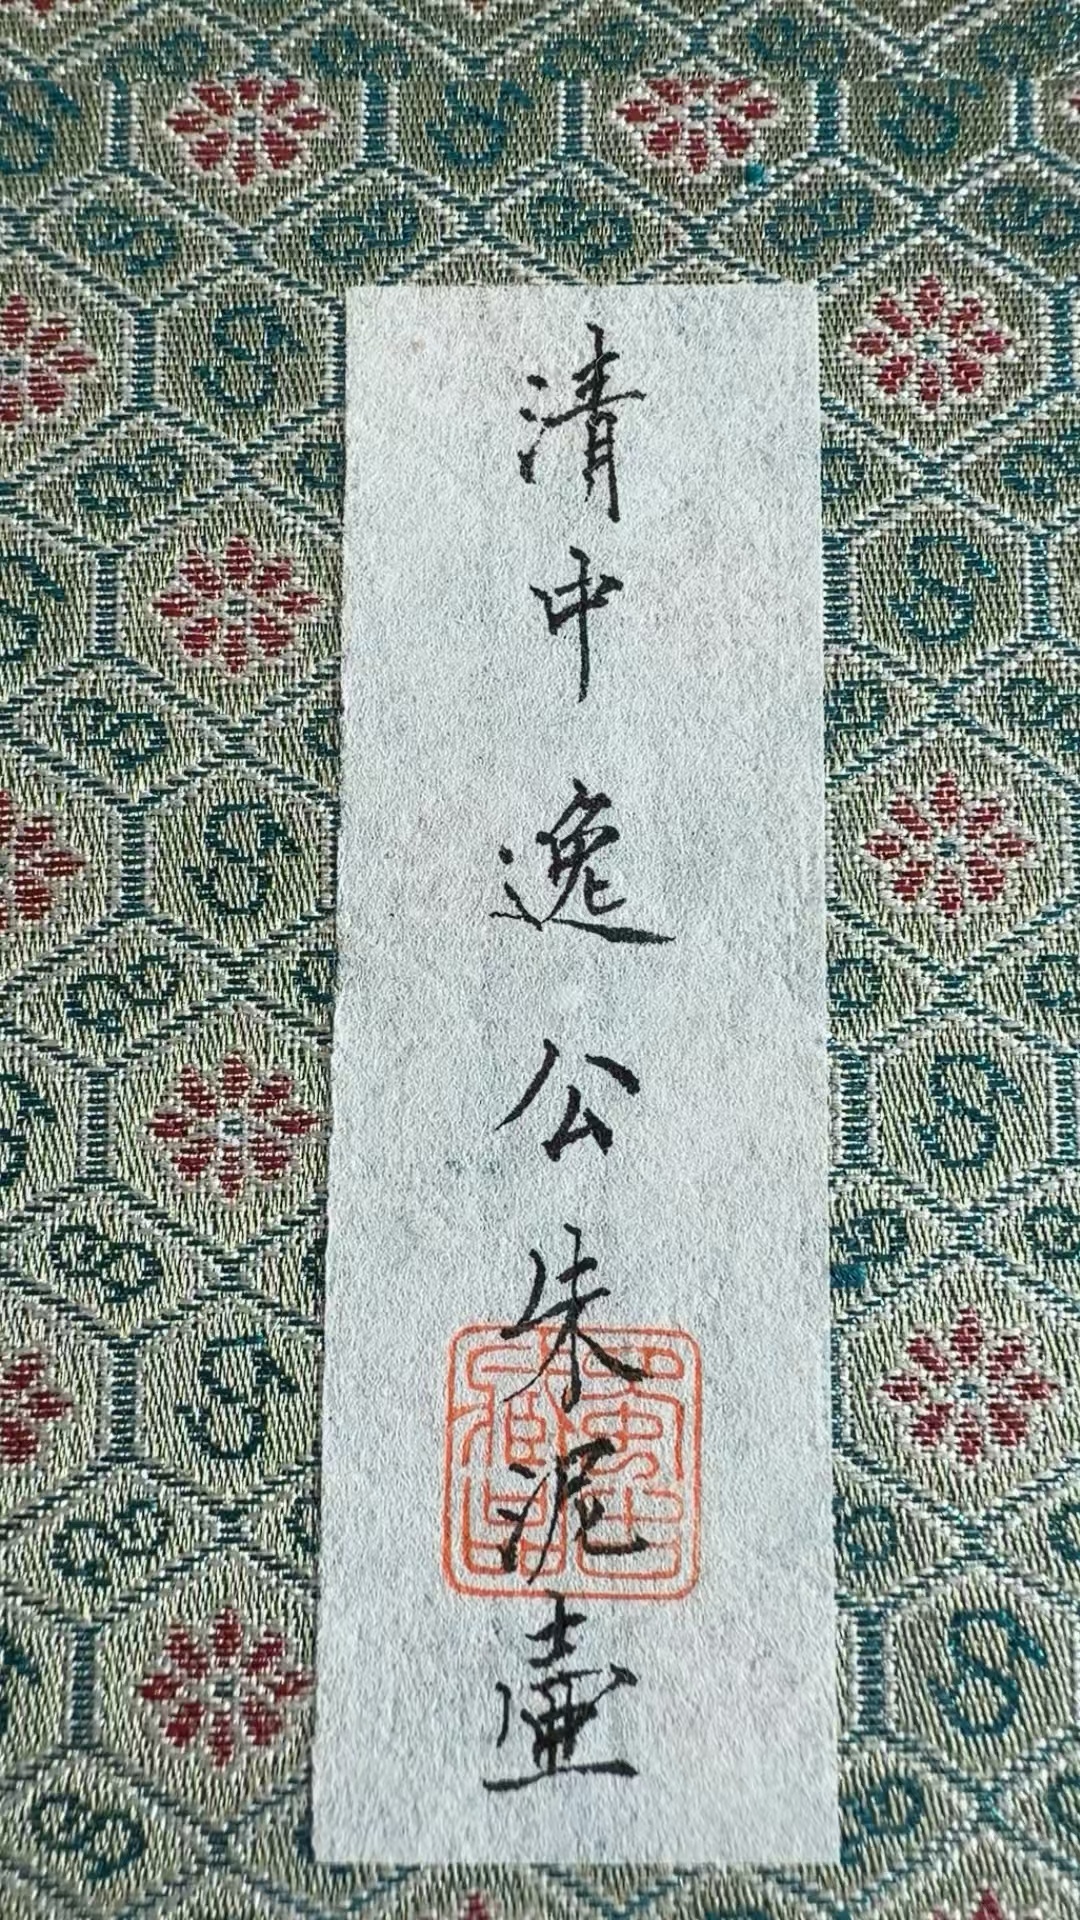 清中逸公朱泥壷